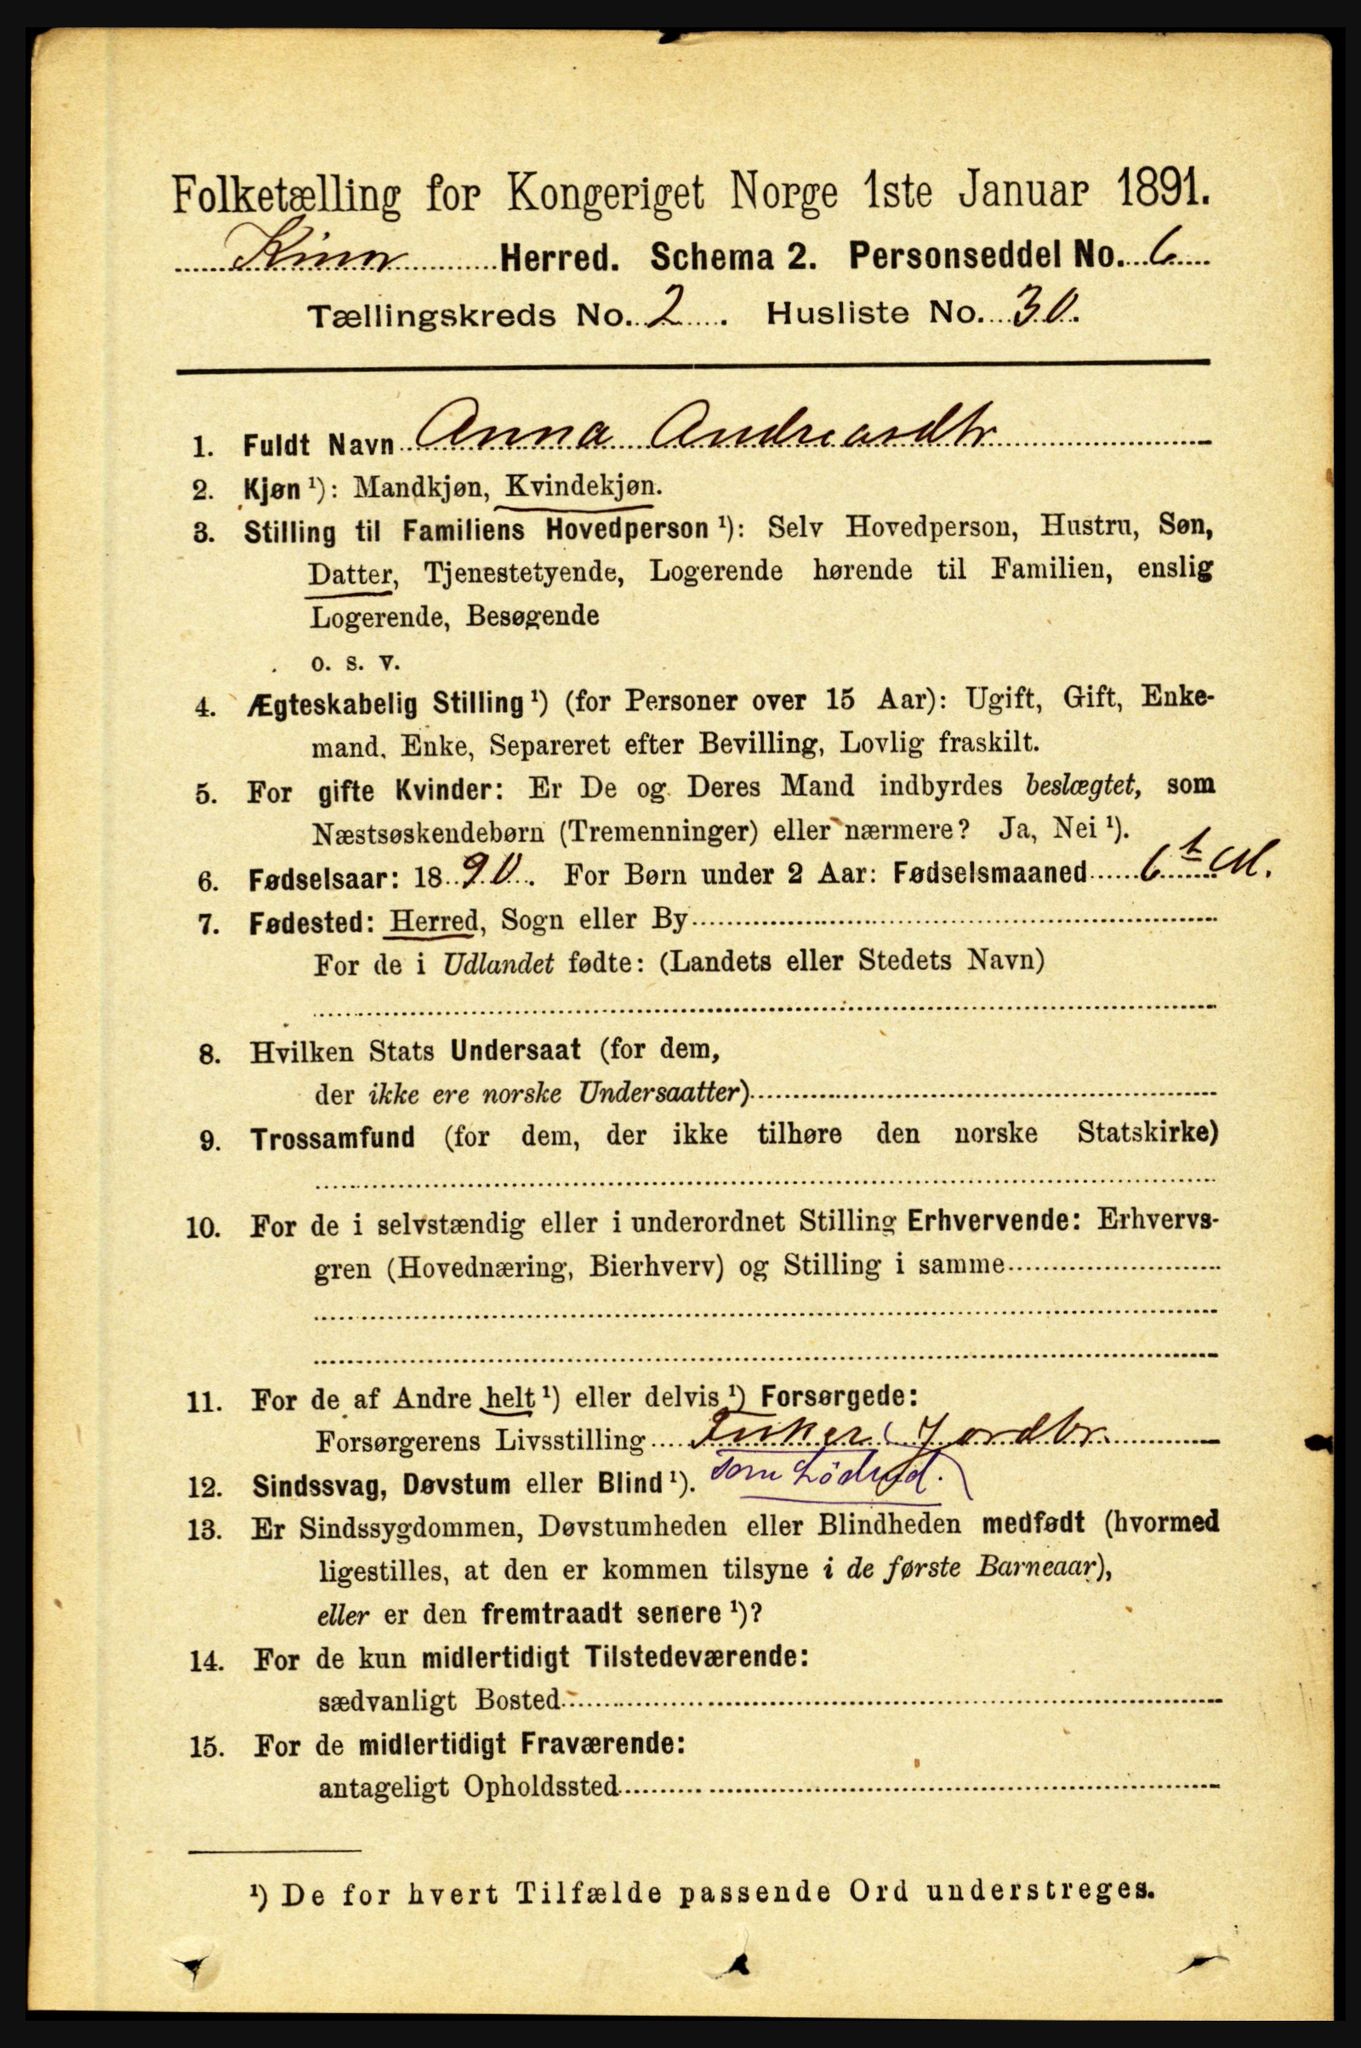 Folketælling for Kongeriget Norge 1ste Januar 1891.
Kinn Herred. Schema 2. Personseddel No. 6
Tællingskreds No. 2. Husliste No. 30.
1. Fuldt Navn Anna Andreasdtr
2. Kjøn ¹): Mandkjøn, Kvindekjøn.
3. Stilling til Familiens Hovedperson ¹): Selv Hovedperson, Hustru, Søn,
Datter, Tjenestetyende, Logerende hørende til Familien, enslig
Logerende, Besøgende
o. s. v.
4. Ægteskabelig Stilling ¹) (for Personer over 15 Aar): Ugift, Gift, Enke-
mand, Enke, Separeret efter Bevilling, Lovlig fraskilt.
5. For gifte Kvinder: Er De og Deres Mand indbyrdes beslægtet, som
Næstsøskendebørn (Tremenninger) eller nærmere? Ja, Nei ¹).
6. Fødselsaar: 1890. For Børn under 2 Aar: Fødselsmaaned 6t M.
7. Fødested: Herred, Sogn eller By
For de i Udlandet fødte: (Landets eller Stedets Navn)
8. Hvilken Stats Undersaat (for dem,
der ikke ere norske Undersaatter)
9. Trossamfund (for dem, der ikke tilhøre den norske Statskirke)
10. For de i selvstændig eller i underordnet Stilling Erhvervende: Erhvervs-
gren (Hovednæring, Bierhverv) og Stilling i samme
11. For de af Andre helt ¹) eller delvis ¹) Forsørgede:
Forsørgerens Livsstilling Fisker Jordbr.
12. Sindssvag, Døvstum eller Blind ¹).
13. Er Sindssygdommen, Døvstumheden eller Blindheden medfødt (hvormed
ligestilles, at den er kommen tilsyne i de første Barneaar),
eller er den fremtraadt senere ¹)?
14. For de kun midlertidigt Tilstedeværende:
sædvanligt Bosted
15. For de midlertidigt Fraværende:
antageligt Opholdssted
¹) De for hvert Tilfælde passende Ord understreges.